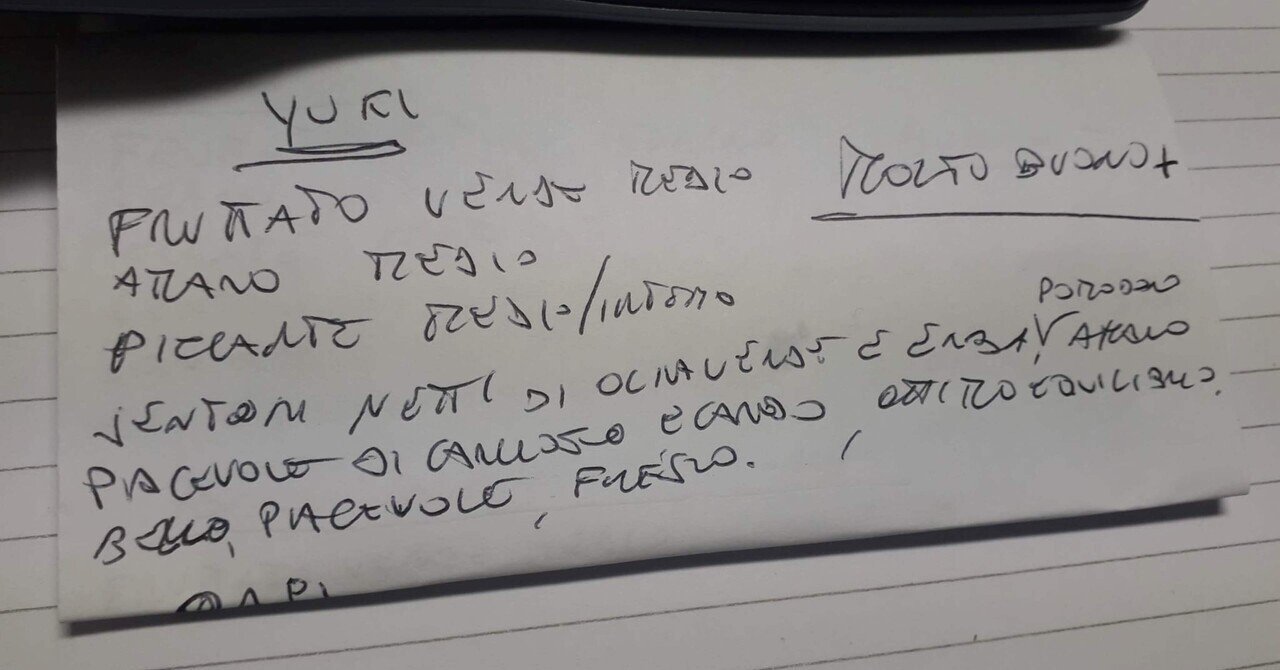 YURI
FRUTTATO VERDE MEDIO MOLTO BUONO+
AMARO MEDIO
PICCANTE MEDIO/INTENSO
POMODORO
SENTORI NETTI DI OLIVA VERDE E ERBA, AMARO
PIACEVOLE DI CARCIOFO E CARDO OTTIMO EQUILIBRIO.
BELLO, PIACEVOLE, FRESCO.